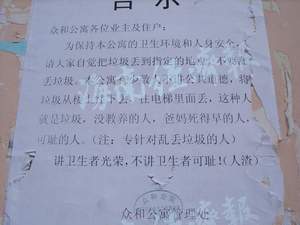 告示
众和公寓各位业主及住户:
为保持本公寓的卫生环境和人身安全,
请大家自觉把垃圾丢到指定的地点,不要乱
丢垃圾。本公寓有少数人不讲公共道德,将
垃圾从楼上丢下去,往电梯里面丢,这种人
就是垃圾,没教养的人,爸妈死得早的人,
可耻的人。(注:专针对乱丢垃圾的人)
讲卫生者光荣,不讲卫生者可耻!(人渣)
众和公寓管理处